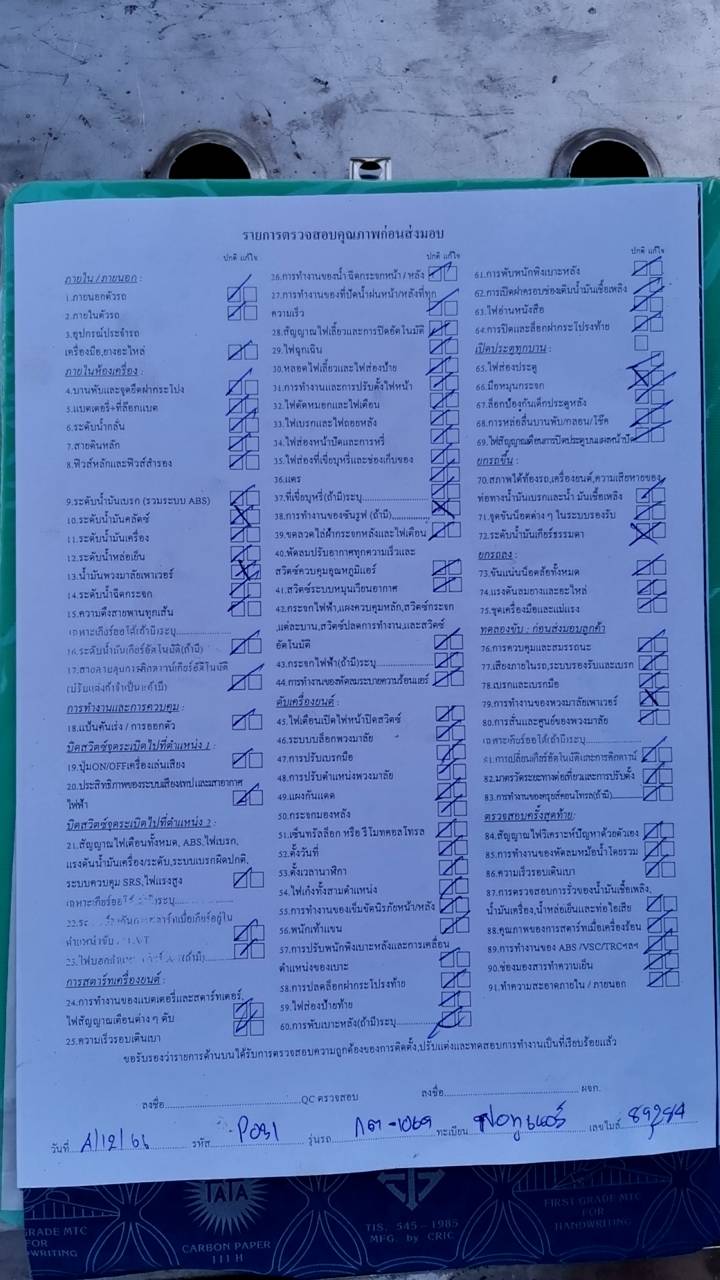 รายการตรวจสอบคุณภาพก่อนส่งมอบ
ปกติ แก้ไข
ภายใน / ภายนอก :
1.ภายนอกตัวรถ
2.ภายในตัวรถ
3.อุปกรณ์ประจำรถ
เครื่องมือ,ยางอะไหล่
ภายในห้องเครื่อง :
4.บานพับและจุดยึดฝากระโปง
5.แบตเตอรี่+ที่ล็อกแบต
6.ระดับน้ำกลั่น
7.สายดินหลัก
8.ฟิวส์หลักและฟิวส์สำรอง
9.ระดับน้ำมันเบรก (รวมระบบ ABS)
10.ระดับน้ำมันคลัตช์
11.ระดับน้ำมันเครื่อง
12.ระดับน้ำหล่อเย็น
13.น้ำมันพวงมาลัยพาเวอร์
14.ระดับน้ำฉีดกระจก
15.ความตึงสายพานทุกเส้น
เฉพาะเกียร์ออโต้(ถ้ามี)ระบุ
16.ระดับน้ำมันเกียร์อัตโนมัติ(ถ้ามี)
17.สายควบคุมการคิกดาวน์เกียร์อัตโนมัติ
(ปรับแต่งถ้าจำเป็น/ถ้ามี)
การทำงานและการควบคุม :
18.แป้นคันเร่ง / การออกตัว
บิดสวิตซ์จุดระเบิดไปที่ตำแหน่ง 1 :
19.ปุ่มON/OFFเครื่องเล่นเสียง
20.ประสิทธิภาพของระบบเสียงเทปและเสาอากาศ
ไฟฟ้า
บิดสวิตซ์จุดระเบิดไปที่ตำแหน่ง 2 :
21.สัญญาณไฟเตือนทั้งหมด, ABS,ไฟเบรก,
แรงดันน้ำมันเครื่อง/ระดับ,ระบบเบรกผิดปกติ,
ระบบควบคุม SRS,ไฟแรงสูง
การสตาร์ทเครื่องยนต์ :
24.การทำงานของแบตเตอรี่และสตาร์ทเตอร์,
ไฟสัญญาณเตือนต่าง ๆ ดับ
25.ความเร็วรอบเดินเบา
ปกติ แก้ไข
26.การทำงานของน้ำ ฉีดกระจกหน้า / หลัง
27.การทำงานของที่ปัดน้ำฝนหน้า/หลังที่ทุก
ความเร็ว
28.สัญญาณไฟเลี้ยวและการปิดอัตโนมัติ
29.ไฟฉุกเฉิน
30.หลอดไฟเลี้ยวและไฟส่องป้าย
31.การทำงานและการปรับตั้งไฟหน้า
32.ไฟตัดหมอกและไฟเตือน
33.ไฟเบรกและไฟถอยหลัง
34.ไฟส่องหน้าปัดและการหรี่
35.ไฟส่องที่เขี่ยบุหรี่และช่องเก็บของ
36.แตร
37.ที่เขี่ยบุหรี่(ถ้ามี)ระบุ
38.การทำงานของซันรูฟ (ถ้ามี)
39.ขดลวดไล่ฝ้ากระจกหลังและไฟเตือน
40.พัดลมปรับอากาศทุกความเร็วและ
สวิตซ์ควบคุมอุณหภูมิแอร์
41.สวิตซ์ระบบหมุนเวียนอากาศ
42.กระจกไฟฟ้า,แผงควบคุมหลัก,สวิตซ์กระจก
แต่ละบาน,สวิตซ์ปลดการทำงาน,และสวิตซ์
อัตโนมัติ
43.กระจกไฟฟ้า(ถ้ามี)ระบุ
44.การทำงานของพัดลมระบายความร้อนแอร์
ดับเครื่องยนต์ :
45.ไฟเตือนเปิดไฟหน้าปิดสวิตซ์
46.ระบบบล็อกพวงมาลัย
47.การปรับเบรกมือ
48.การปรับตำแหน่งพวงมาลัย
49.แผงกันแดด
50.กระจกมองหลัง
51.เซ็นทรัลล็อก หรือ รีโมทคอลโทรล
52.ตั้งวันที่
53.ตั้งเวลานาฬิกา
54.ไฟเก๋งทั้งสามตำแหน่ง
55.การทำงานของเข็มขัดนิรภัยหน้า/หลัง
56.พนักเท้าแขน
57.การปรับพนักพิงเบาะหลังและการเคลื่อน
ตำแหน่งของเบาะ
58.การปลดล็อกฝากระโปรงท้าย
59.ไฟส่องป้ายท้าย
60.การพับเบาะหลัง(ถ้ามี)ระบุ
ปกติ แก้ไข
61.การพับพนักพิงเบาะหลัง
62.การเปิดฝาครอบช่องเติมน้ำมันเชื้อเพลิง
63.ไฟอ่านหนังสือ
64.การปิดและล็อกฝากระโปรงท้าย
เปิดประตูทุกบาน :
65.ไฟส่องประตู
66.มือหมุนกระจก
67.ล็อกป้องกันเด็กประตูหลัง
68.การหล่อลื่นบานพับ/กลอน/ โช๊ค
69.ไฟสัญญาณเตือนการปิดประตูบนแผงหน้าปัด
ยกรถขึ้น :
70.สภาพใต้ท้องรถ,เครื่องยนต์,ความเสียหายของ
ท่อทางน้ำมันเบรกและน้ำ มันเชื้อเพลิง
71.จุดขันน็อตต่าง ๆ ในระบบรองรับ
72.ระดับน้ำมันเกียร์ธรรมดา
ยกรถลง :
73.ขันแน่นน็อตล้อทั้งหมด
74.แรงดันลมยางและอะไหล่
75.ชุดเครื่องมือและแม่แรง
ทดลองขับ : ก่อนส่งมอบลูกค้า
76.การควบคุมและสมรรถนะ
77.เสียงภายในรถ,ระบบรองรับและเบรก
78.เบรกและเบรกมือ
79.การทำงานของพวงมาลัยเพาเวอร์
80.การสั่นและศูนย์ของพวงมาลัย
เฉพาะเกียร์ออโต้(ถ้ามี)ระบุ
81.การเปลี่ยนเกียร์อัตโนมัติและการคิกดาวน์
82.มาตรวัดระยะทางต่อเที่ยวและการปรับตั้ง
83.การทำงานของครุยส์คอนโทรล(ถ้ามี)
ตรวจสอบครั้งสุดท้าย:
84.สัญญาณไฟวิเคราะห์ปัญหาด้วยตัวเอง
85.การทำงานของพัดลมหม้อน้ำ โดยรวม
86.ความเร็วรอบเดินเบา
87.การตรวจสอบการรั่วของน้ำมันเชื้อเพลิง,
น้ำมันเครื่อง,น้ำหล่อเย็นและท่อไอเสีย
88.คุณภาพของการสตาร์ทเมื่อเครื่องร้อน
89.การทำงานของ ABS /VSC/TRCฯลฯ
90.ช่องมองสารทำความเย็น
91.ทำความสะอาดภายใน / ภายนอก
ขอรับรองว่ารายการด้านบนได้รับการตรวจสอบความถูกต้องของการติดตั้ง,ปรับแต่งและทดสอบการทำงานเป็นที่เรียบร้อยแล้ว
ลงชื่อ QC ตรวจสอบ ลงชื่อ ผจก.
วันที่ 4/12/66 รหัส P031 รุ่นรถ กต-1069 ทะเบียน ฟอทูนเนอร์ เลขไมล์ 89284
GRADE MTC
FOR
WRITING
TATA
CARBON PAPER
111 H
TIS. 545 - 1985
MFG. by CRIC
FIRST GRADE MTC
FOR
HANDWRITING